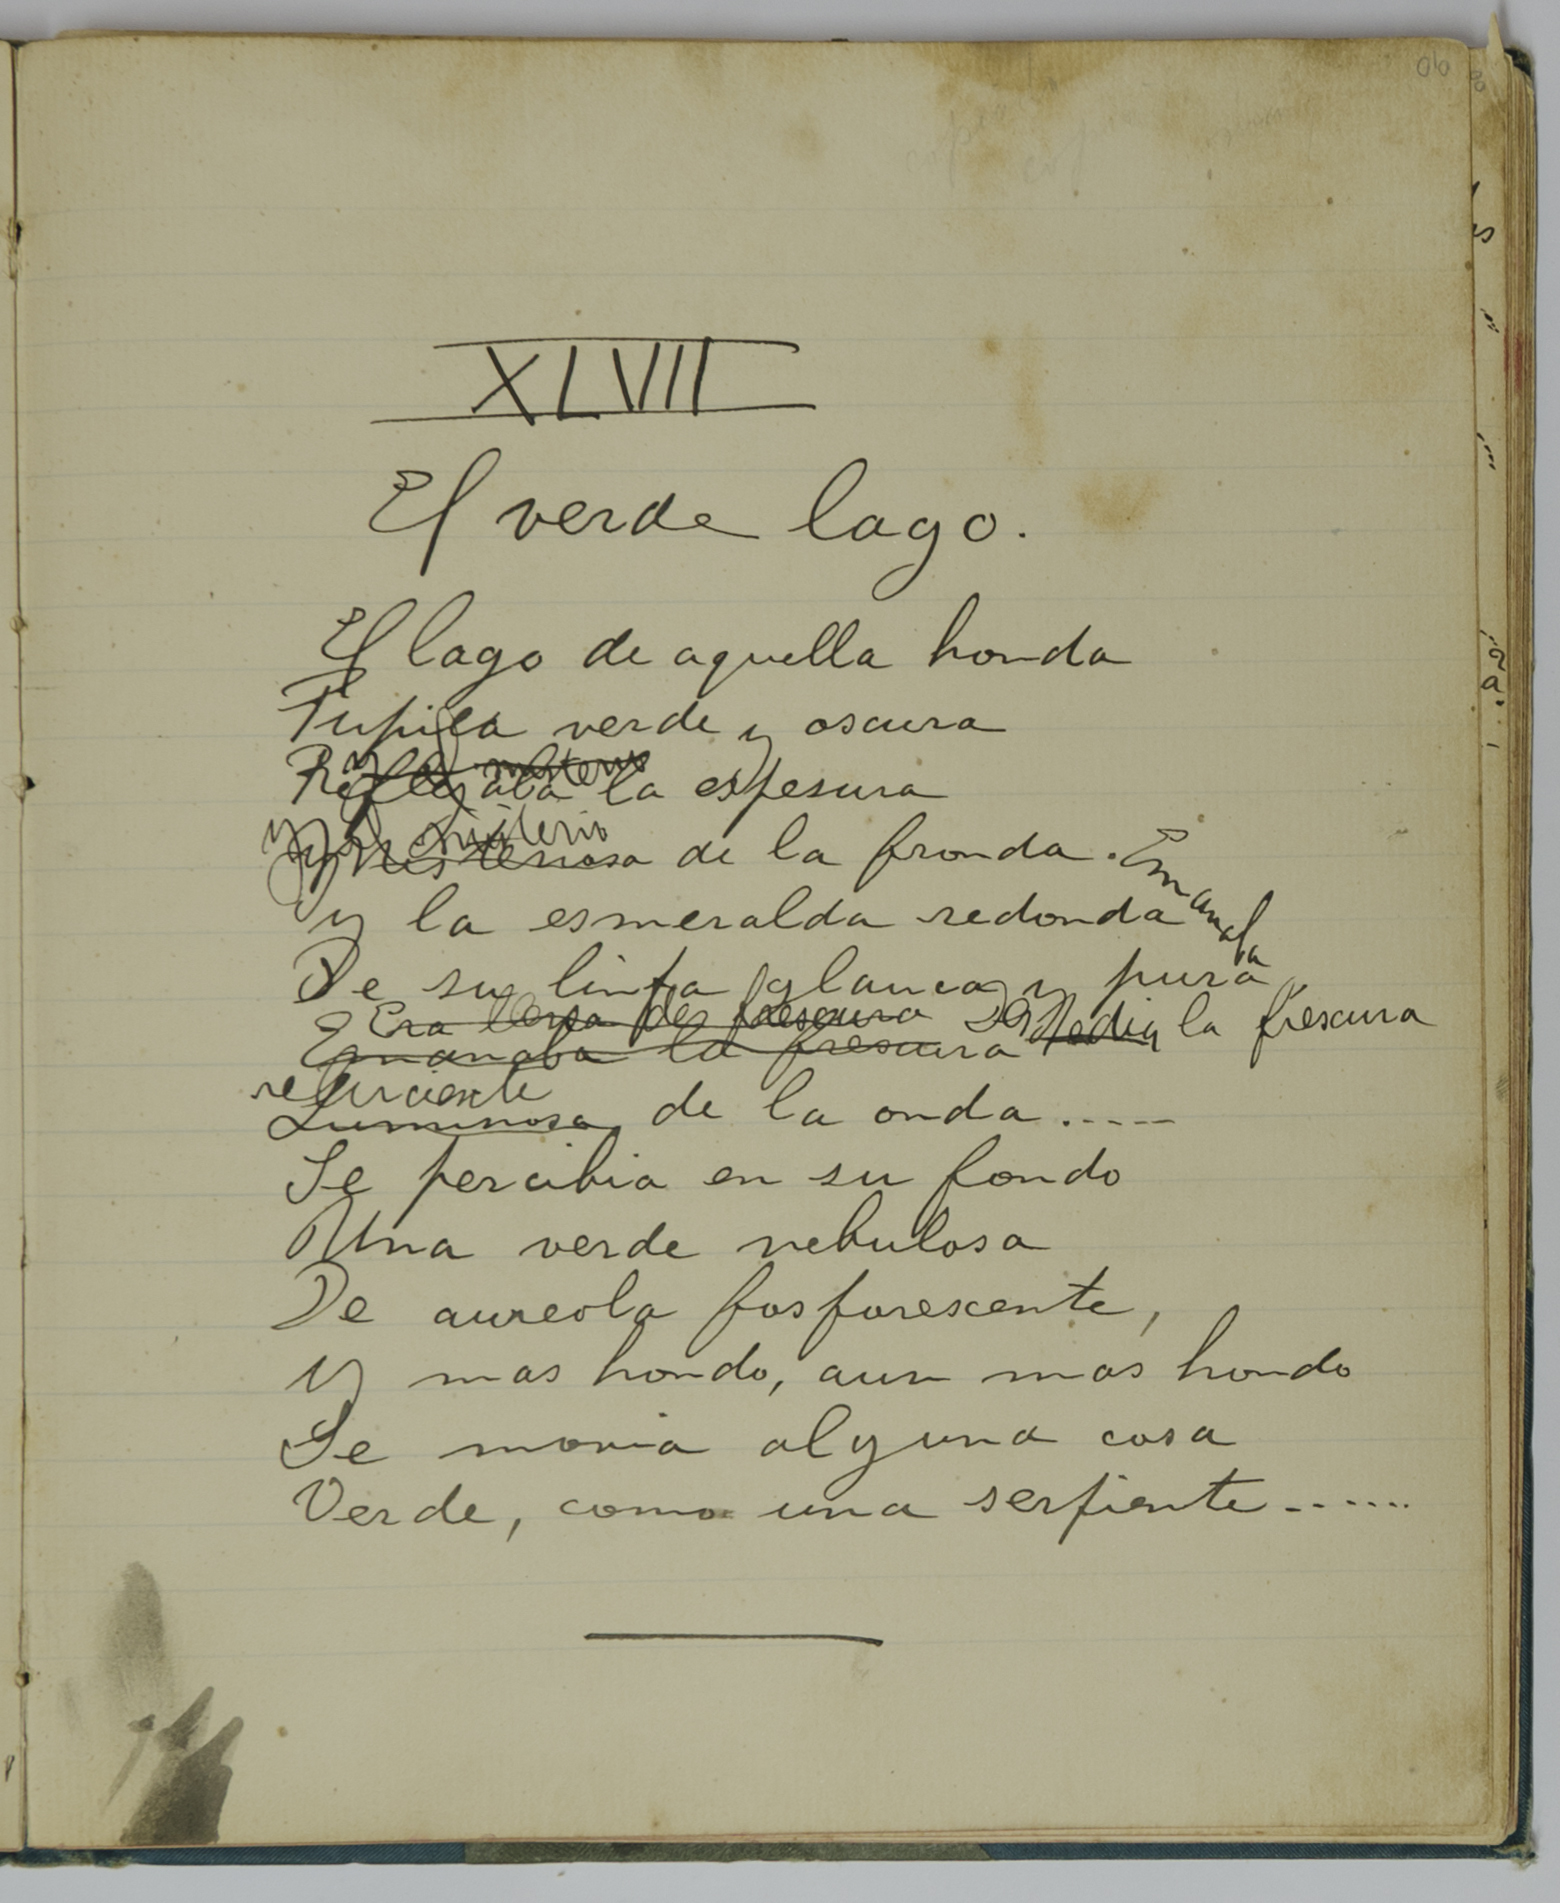 XLVII
El verde lago.
El lago de aquella honda
Pupila verde y oscura
Reflejaba la espesura
y el misterio
Misteriosa de la fronda. Emanaba
y la esmeralda redonda
De su linfa glauca y pura
Era llena de frescura la frescura
Emanaba la frescura
refurciente
Luminosa de la onda.....
Se percibia en su fondo
Una verde nebulosa
De aureola fosforescente,
y mas hondo, aun mas hondo
Se movia alguna cosa
Verde, como una serpiente.......